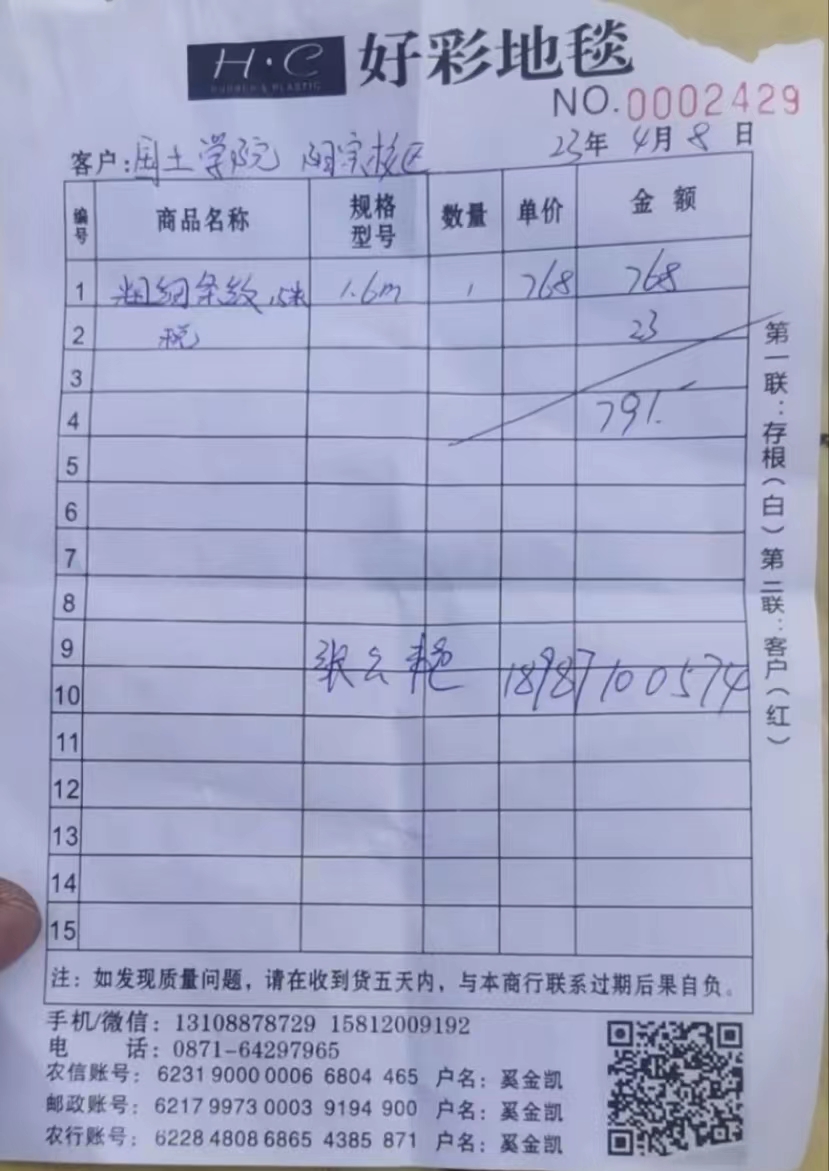 H·C 好彩地毯
RUBBER & PLASTIC
NO.0002429
客户:国土学院 阳宗校区 23年 4月 8日
编号 商品名称 规格型号 数量 单价 金额
1 粗细条纹,15米 1.6m 1 768 768
2 税 23
3
4 791.
5
6
7
8
9
张云艳 18987100574
10
11
12
13
14
15
第一联:存根(白)第二联:客户(红)
注:如发现质量问题,请在收到货五天内,与本商行联系过期后果自负。
手机/微信:13108878729 15812009192
电 话:0871-64297965
农信账号:6231 9000 0006 6804 465 户名:奚金凯
邮政账号:6217 9973 0003 9194 900 户名:奚金凯
农行账号:6228 4808 6865 4385 871 户名:奚金凯